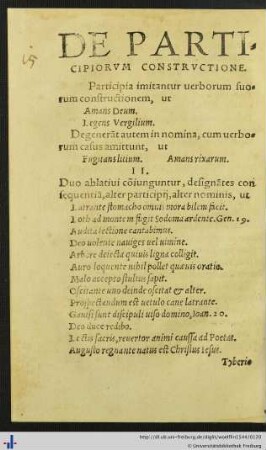 DE PARTI-
CIPIORVM CONSTRVCTIONE.
Participia imitantur uerborum suo
rum constructionem, ut
Amans Deum.
Legens Vergilium.
Degenerāt autem in nomina, cum uerbo
rum casus amittunt, ut
Fugitans litium. Amans rixarum.
II.
Duo ablatiui cōiunguntur, designātes con
sequentiā, alter participij, alter nominis, ut
Latrante stomacho
Loth ad montem fugit Sodoma ardente. Gen. 19.
Audita lectione cantabimus.
Deo uolente nauiges uel uimine.
Arbore deiecta quiuis ligna colligit.
Auro loquente nihil pollet quæuis oratio.
Malo accepto stultus sapit.
Oscitante uno deinde oscitat & alter.
Prospectandum est uetulo cane latrante.
Gauisi sunt discipuli uiso domino, Ioan. 20.
Deo duce redibo.
Lectis sacris, reuertor animi caussa ad Poetas.
Augusto regnante natus est Christus Iesus.
Tyberio
http://dl.ub.uni-freiburg.de/diglit/
© Universitätsbibliothek Freiburg